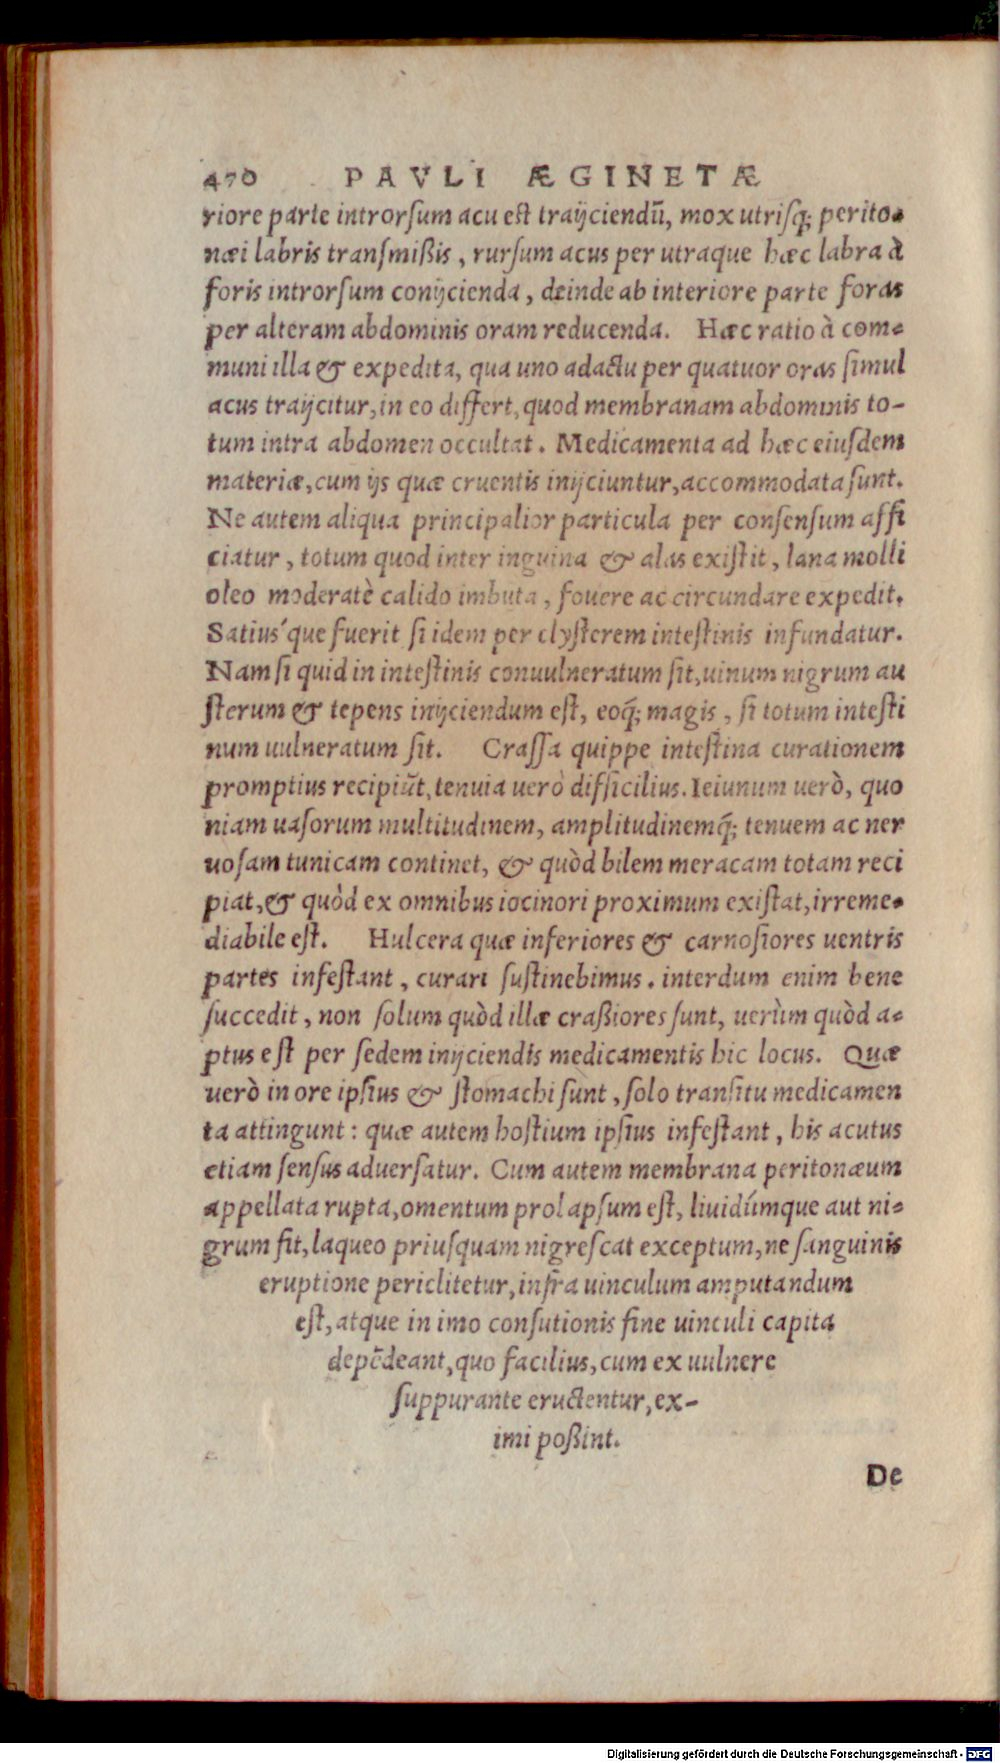 470 PAVLI ÆGINETÆ
riore parte introrſum acu eſt traijciendū, mox utriſq; perito-
næi labris tranſmißis, rurſum acus per utraque hæc labra à
foris introrſum conijcienda, deinde ab interiore parte foras
per alteram abdominis oram reducenda. Hæc ratio à com-
muni illa & expedita, qua uno adactu per quatuor oras ſimul
acus traijcitur, in eo differt, quod membranam abdominis to-
tum intra abdomen occultat. Medicamenta ad hæc eiuſdem
materiæ, cum ijs quæ cruentis inijciuntur, accommodata ſunt.
Ne autem aliqua principalior particula per conſenſum affi
ciatur, totum quod inter inguina & alas exiſtit, lana molli
oleo moderatè calido imbuta, fouere ac circundare expedit.
Satius´que fuerit ſi idem per clyſterem inteſtinis infundatur.
Nam ſi quid in inteſtinis conuulneratum ſit, uinum nigrum au
ſterum & tepens inijciendum eſt, eoq́; magis, ſi totum inteſti
num uulneratum ſit. Craſſa quippe inteſtina curationem
promptius recipiūt, tenuia uerò difficilius. Ieiunum uerò, quo
niam uaſorum multitudinem, amplitudinemq́; tenuem ac ner
uoſam tunicam continet, & quòd bilem meracam totam reci
piat, & quòd ex omnibus iocinori proximum exiſtat, irreme-
diabile eſt. Hulcera quæ inferiores & carnoſiores uentris
partes infeſtant, curari ſuſtinebimus. interdum enim bene
ſuccedit, non ſolum quòd illæ craßiores ſunt, uerùm quòd a-
ptus eſt per ſedem inijciendis medicamentis hic locus. Quæ
uerò in ore ipſius & ſtomachi ſunt, ſolo tranſitu medicamen
ta attingunt: quæ autem hoſtium ipſius infeſtant, his acutus
etiam ſenſus aduerſatur. Cum autem membrana peritonæum
appellata rupta, omentum prolapſum eſt, liuidúmque aut ni-
grum fit, laqueo priuſquam nigreſcat exceptum, ne ſanguinis
eruptione periclitetur, infra uinculum amputandum
eſt, atque in imo conſutionis fine uinculi capita
depēdeant, quo facilius, cum ex uulnere
ſuppurante eructentur, ex-
imi poßint.
De
Digitalisierung gefördert durch die Deutsche Forschungsgemeinschaft - DFG